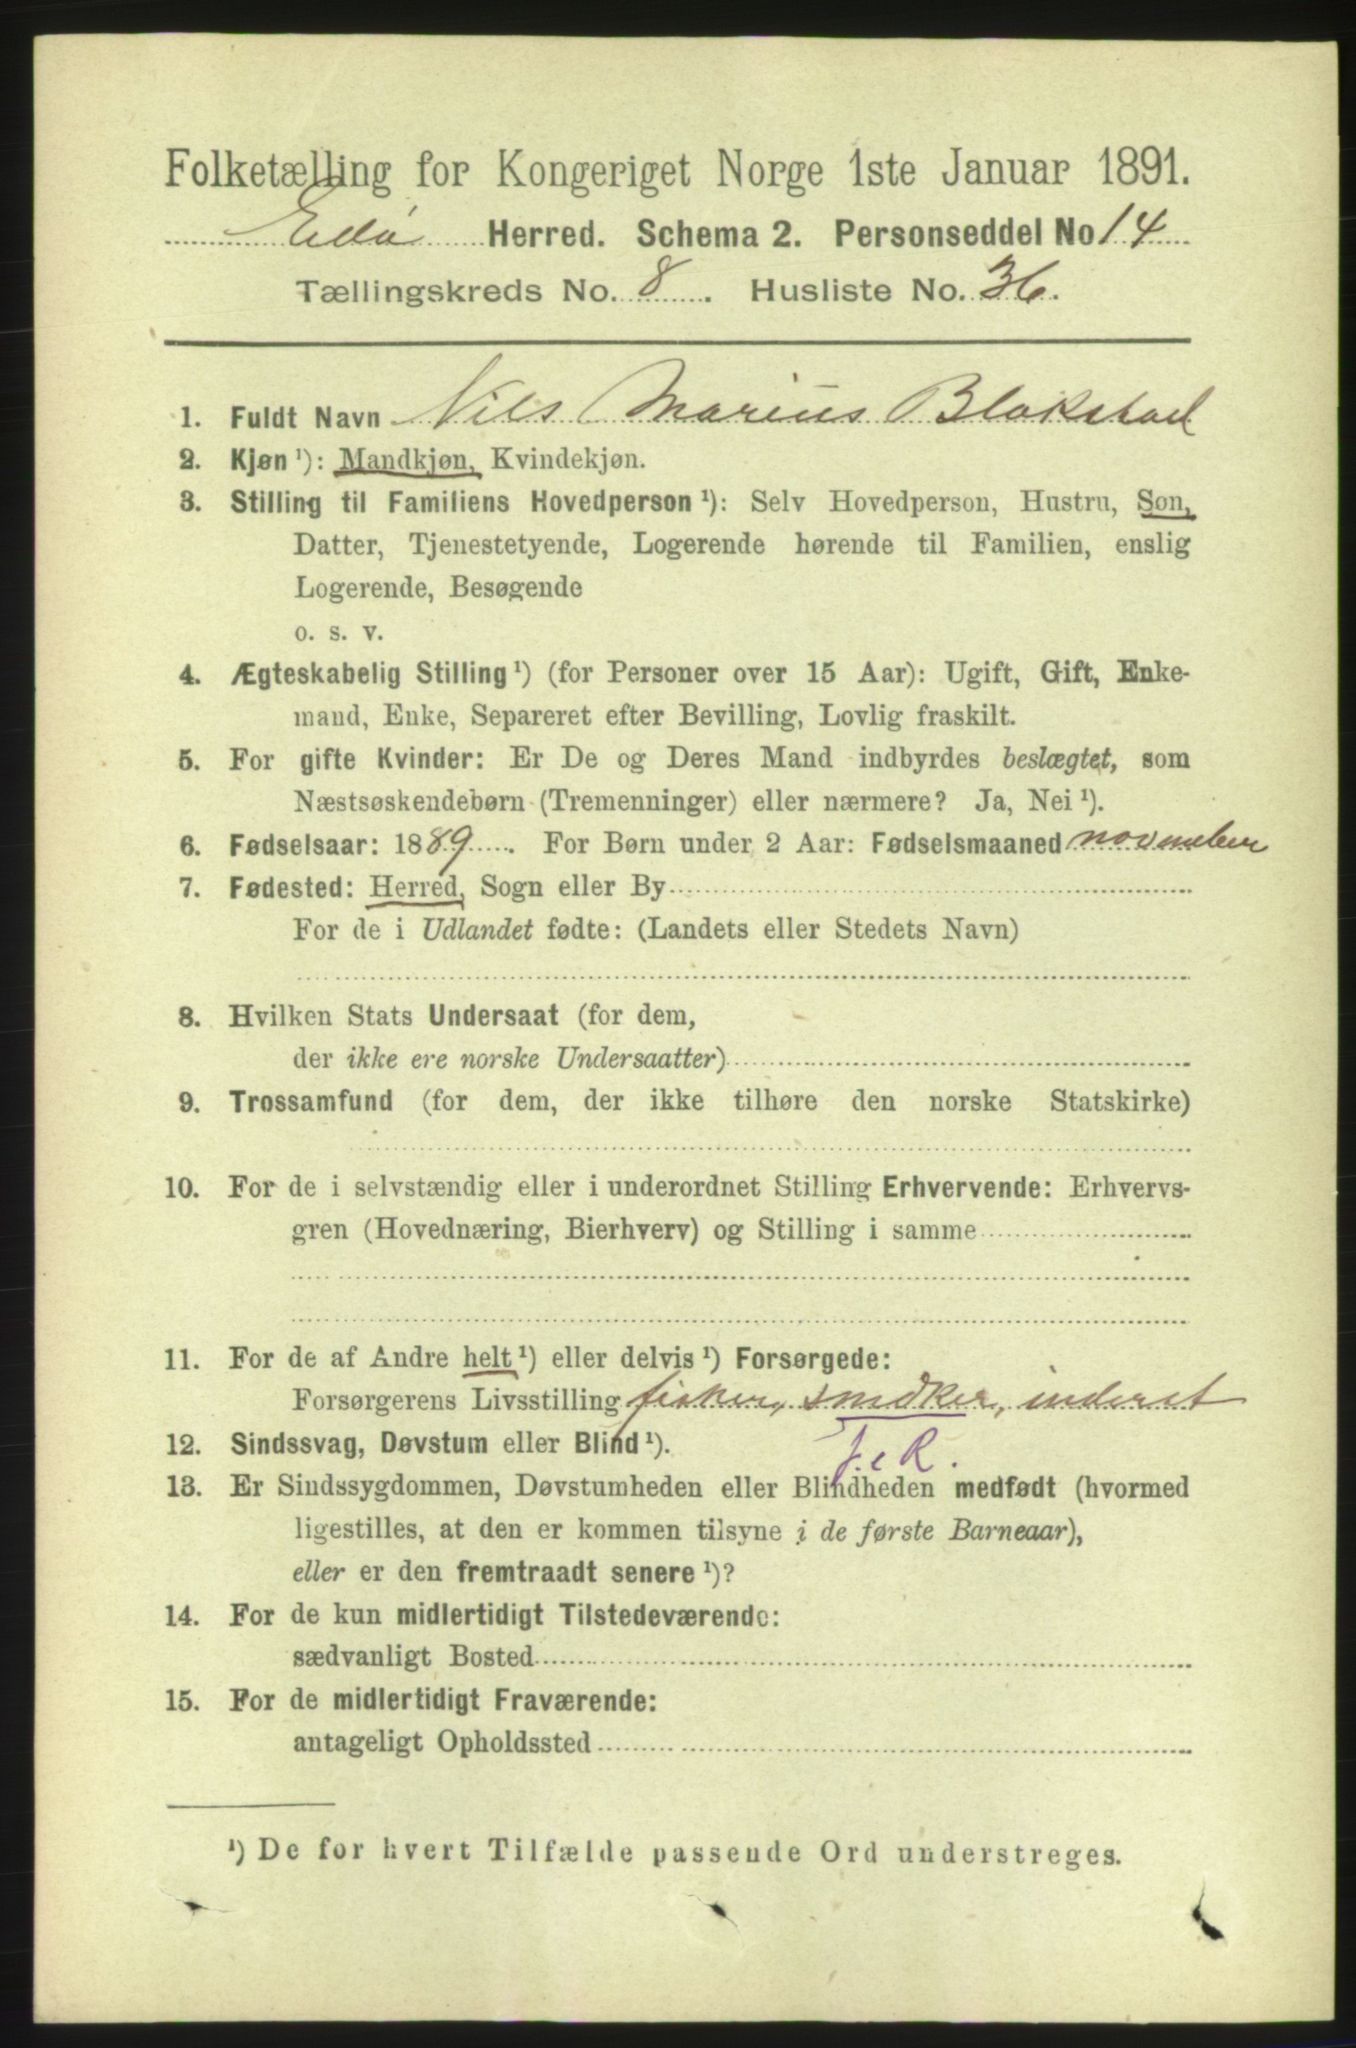 Folketælling for Kongeriget Norge 1ste Januar 1891.
Edø Herred. Schema 2. Personseddel No 14
Tællingskreds No. 8. Husliste No. 36.
1. Fuldt Navn Nils Marius Blakstad
2. Kjøn ¹): Mandkjøn, Kvindekjøn.
3. Stilling til Familiens Hovedperson ¹): Selv Hovedperson, Hustru, Søn,
Datter, Tjenestetyende, Logerende hørende til Familien, enslig
Logerende, Besøgende
o. s. v.
4. Ægteskabelig Stilling ¹) (for Personer over 15 Aar): Ugift, Gift, Enke-
mand, Enke, Separeret efter Bevilling, Lovlig fraskilt.
5. For gifte Kvinder: Er De og Deres Mand indbyrdes beslægtet, som
Næstsøskendebørn (Tremenninger) eller nærmere? Ja, Nei ¹).
6. Fødselsaar: 1889. For Børn under 2 Aar: Fødselsmaaned november
7. Fødested: Herred, Sogn eller By
For de i Udlandet fødte: (Landets eller Stedets Navn)
8. Hvilken Stats Undersaat (for dem,
der ikke ere norske Undersaatter)
9. Trossamfund (for dem, der ikke tilhøre den norske Statskirke)
10. For de i selvstændig eller i underordnet Stilling Erhvervende: Erhvervs-
gren (Hovednæring, Bierhverv) og Stilling i samme
11. For de af Andre helt ¹) eller delvis ¹) Forsørgede:
Forsørgerens Livsstilling fisker, snedker, inderst
12. Sindssvag, Døvstum eller Blind ¹). F. e R.
13. Er Sindssygdommen, Døvstumheden eller Blindheden medfødt (hvormed
ligestilles, at den er kommen tilsyne i de første Barneaar),
eller er den fremtraadt senere ¹)?
14. For de kun midlertidigt Tilstedeværende:
sædvanligt Bosted
15. For de midlertidigt Fraværende:
antageligt Opholdssted
¹) De for hvert Tilfælde passende Ord understreges.